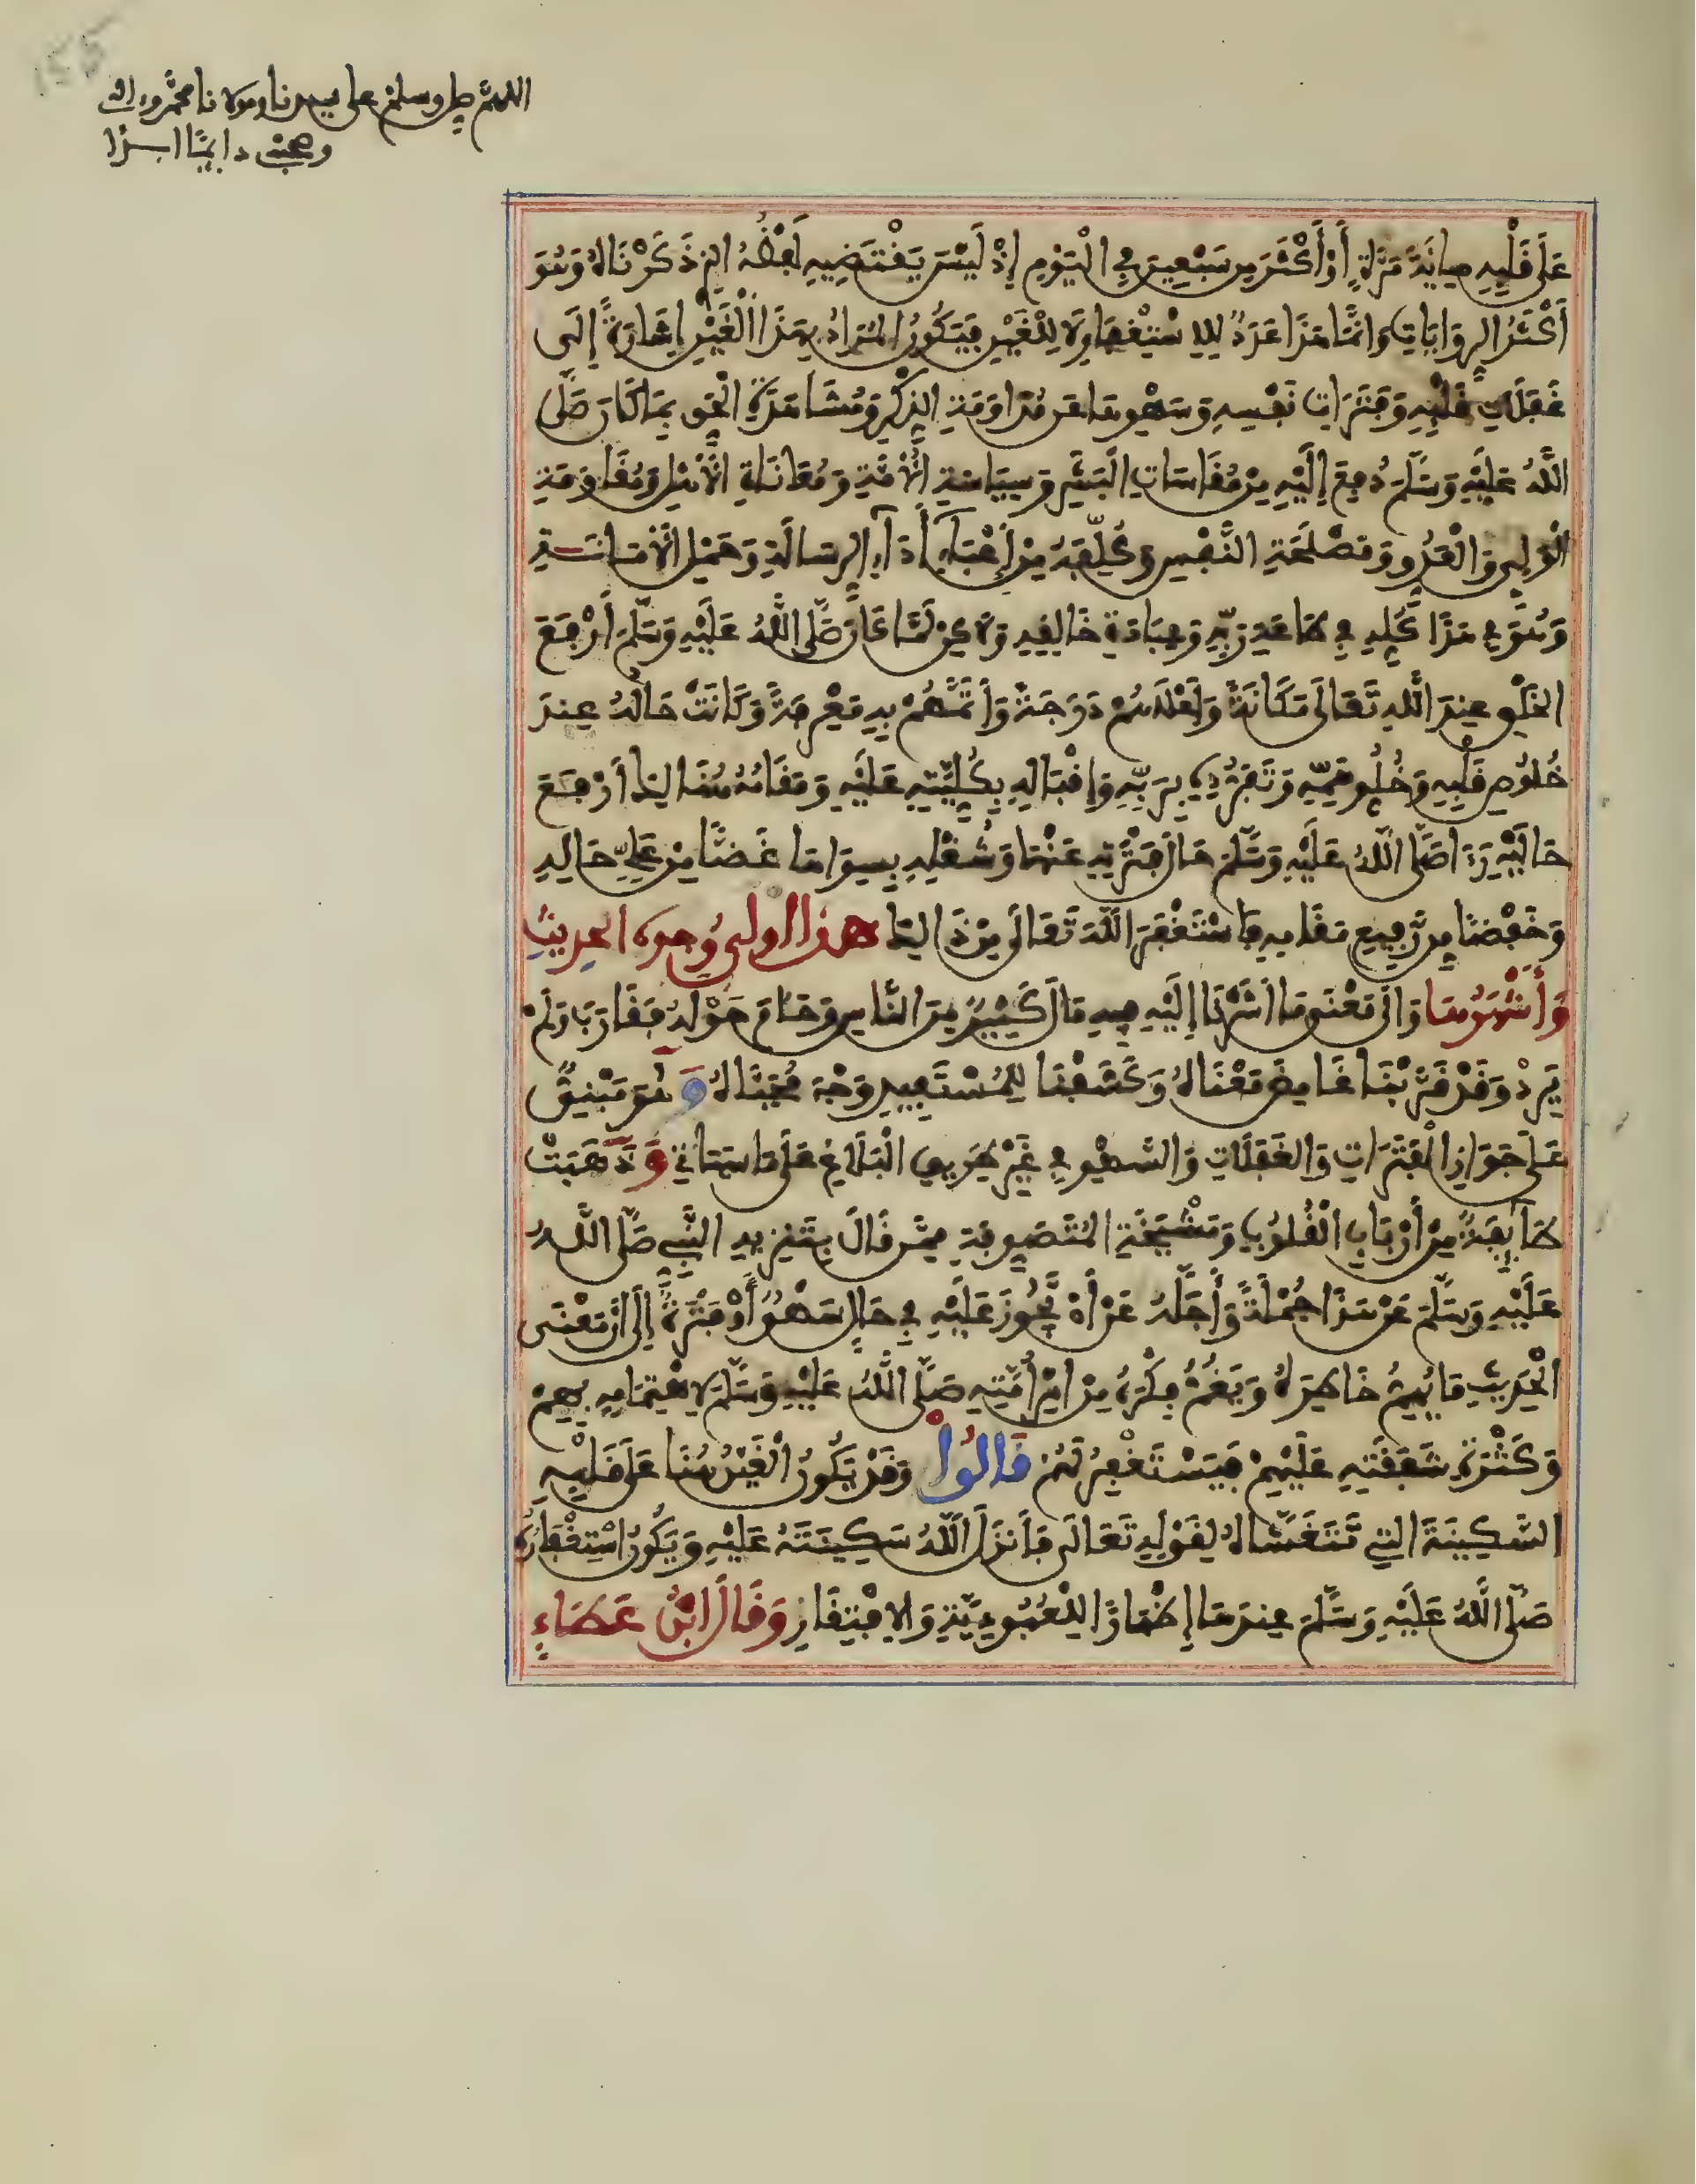 اللهم صل وسلم على سيدنا ومولانا محمد وءاله
وصحبه دايمًا ابدًا
عَلَى قَلْبِهِ مِايَةَ مَرَّةٍ أَوْ أَكْثَرَ مِن سَبْعِينَ فِي الْيَوْمِ إِذْ لَيْسَ يَقْتَضِيهِ لَفْظُهُ الذِي ذَكَرْنَاهُ وَهُوَ
أَكْثَرُ الرِّوَايَاتِ وَانَّمَا هَذَا عَدَدٌ لِلاِسْتِغْفَارِ لَا لِلْغَيْنِ فَيَكُونُ الْمُرَادُ بِهَذَا الْغَيْنِ إِشَارَةً إِلَى
غَفَلَاتِ قَلْبِهِ وَفَتَرَاتِ نَفْسِهِ وَسَهْوِهَا عَن مُدَاوَمَةِ الذِّكْرِ وَمُشَاهَدَةِ الْحَقِّ بِمَا كَانَ صَلَّى
اللَّهُ عَلَيْهِ وَسَلَّمَ دُفِعَ إِلَيْهِ مِنْ مُقَاسَاتِ الْبَشَرِ وَسِيَاسَةِ الْأُمَّةِ وَمُعَانَاةِ الْأَهْلِ وَمُقَاوَمَةِ
الْوَلِيِّ وَالْعَدُوِّ وَمَصْلَحَةِ النَّفْسِ وَكُلِّفَهُ مِنْ أَعْبَاءِ أَدَاءِ الرِّسَالَةِ وَحَمْلِ الْأَمَانَةِ
وَهُوَ فِي هَذَا كُلِّهِ فِي طَاعَةِ رَبِّهِ وَعِبَادَةِ خَالِقِهِ وَلَاكِن لَمَّا كَانَ صَلَّى اللَّهُ عَلَيْهِ وَسَلَّمَ أَرْفَعَ
الْخَلْقِ عِندَ اللَّهِ تَعَالَى مَكَانَةً وَأَعْلَاهُمْ دَرَجَةً وَأَتَمَّهُمْ بِهِ مَعْرِفَةً وَكَانَتْ حَالُهُ عِندَ
خُلُوصِ قَلْبِهِ وَخُلُوِّ هَمِّهِ وَتَفَرُّدِهِ بِرَبِّهِ وَإِقْبَالِهِ بِكُلِّيَّتِهِ عَلَيْهِ وَمَقَامُهُ هُنَالِكَ أَرْفَعَ
حَالَيْهِ رَءَا صَلَّى اللَّهُ عَلَيْهِ وَسَلَّمَ حَالَ فَتْرَتِهِ عَنْهَا وَشُغْلِهِ بِسِوَاهَا غَضًّا مِنْ عَلِيِّ حَالِهِ
وَخَفْضًا مِن رَّفِيعِ مَقَامِهِ فَاسْتَغْفَرَ اللَّهَ تَعَالَى مِنْ ذَالِكَ هذا اولى وُجوه الحديثِ
وَأَشْهَرُهَا وَالَى مَعْنَى مَا أَشَرْنَا إِلَيْهِ فِيهِ مَالَ كَثِيرٌ مِنَ النَّاسِ وَحَامَ حَوْلَهُ فَقَارَبَ وَلَمْ
يَرِدْ وَقَدْ قَرَّبْنَا غَامِضَ مَعْنَاهُ وَكَشَفْنَا لِلْمُسْتَفِيدِ وَجْهَ مُحَيَّاهُ وَهُوَ مَبْنِيٌّ
عَلَى جَوَازِ الْفَتَرَاتِ وَالْغَفَلَاتِ وَالسَّهْوِ فِي غَيْرِ طَرِيقِ الْبَلَاغِ عَلَى مَا سَيَاتِي وَذَهَبَتْ
طَائِفَةٌ مِنْ أَرْبَابِ الْقُلُوبِ وَمَشْيَخَةِ الْمُتَصَوِّفَةِ مِمَّن قَالَ بِتَنْزِيهِ النَّبِيِّ صَلَّى اللَّهُ
عَلَيْهِ وَسَلَّمَ عَنْ هَذَا جُمْلَةً وَأَجَلَّهُ عَنْ أَنْ يَّجُوزَ عَلَيْهِ فِي حَالٍ سَهْوٌ أَوْ فَتْرَةٌ إِلَى أَنَّ مَعْنَى
الْحَدِيثِ مَا يُهِمُّ خَاطِرَهُ وَيَغُمُّ فِكْرَهُ مِنَ امْرِ أُمَّتِهِ صَلَّى اللَّهُ عَلَيْهِ وَسَلَّمَ لِاهْتِمَامِهِ بِهِمْ
وَكَثْرَةِ شَفَقَتِهِ عَلَيْهِمْ فَيَسْتَغْفِرُ لَهُمْ قَالُوا وَقَدْ يَكُونُ الْغَيْنُ هُنَا عَلَى قَلْبِهِ
السَّكِينَةَ التِي تَتَغَشَّاهُ لِقَوْلِهِ تَعَالَى فَأَنزَلَ اللَّهُ سَكِينَتَهُ عَلَيْهِ وَيَكُونُ اسْتِغْفَارُهُ
صَلَّى اللَّهُ عَلَيْهِ وَسَلَّمَ عِندَهَا إِظْهَارًا لِلْعُبُودِيَّةِ وَالِافْتِقَارِ وَقَالَ ابْنُ عَطَاءٍ